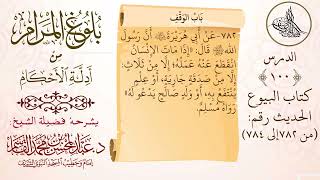 بُلُوغُ المَرَامِ
مِنْ
أَدِلَّةِ الأَحْكَامِ
يشرحه فضيلة الشيخ:
بَابُ الوَقْفِ
٧٨٢- عَنْ أَبِي هُرَيْرَةَ أَنَّ رَسُولَ
اللهِ ﷺ قَالَ: «إِذَا مَاتَ الإِنْسَانُ
انْقَطَعَ عَنْهُ عَمَلُهُ؛ إِلَّا مِنْ ثَلَاثٍ:
إِلَّا مِنْ صَدَقَةٍ جَارِيَةٍ، أَوْ عِلْمٍ
يُنْتَفَعُ بِهِ، أَوْ وَلَدٍ صَالِحٍ يَدْعُو لَهُ»
رَوَاهُ مُسْلِمٌ.
الدرس
(١٠٠)
كتاب البيوع
الحديث رقم:
(من ٧٨٢ إلى ٧٨٤)